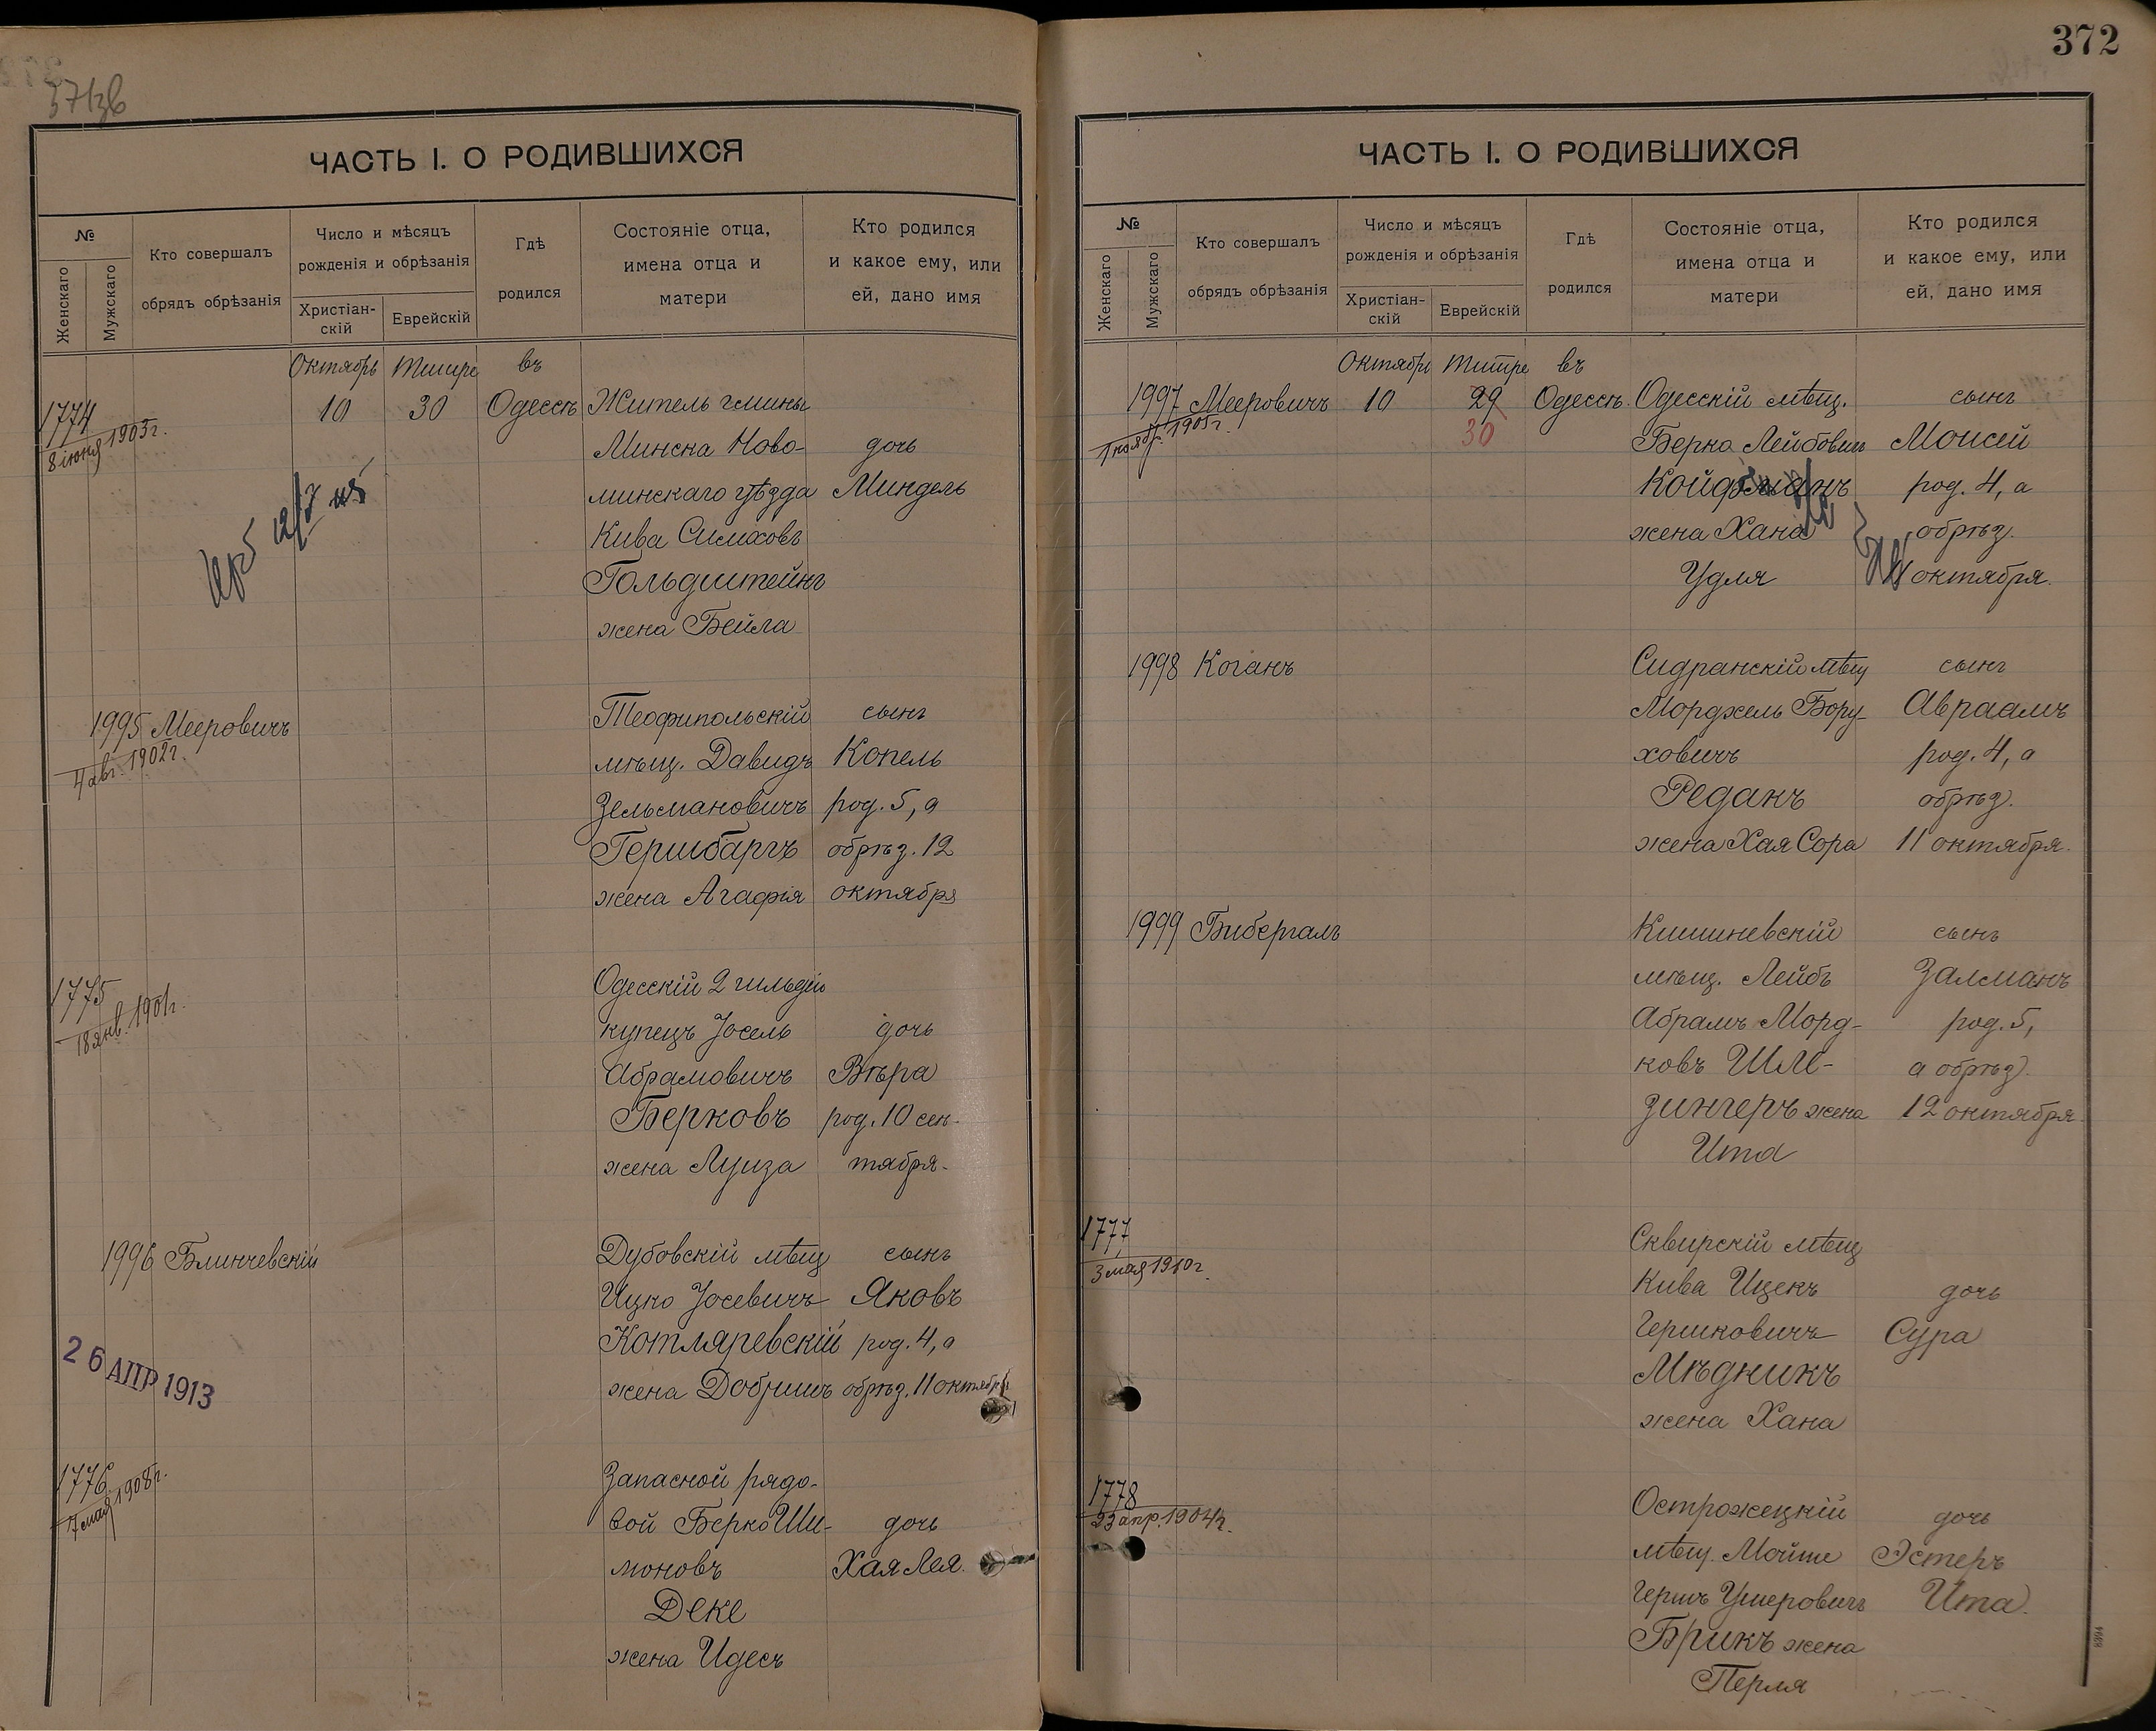 372
ЧАСТЬ I. О РОДИВШИХСЯ
№
Женскаго
Мужскаго
Кто совершалъ
обрядъ обрѣзанія
Число и мѣсяцъ
рожденія и обрѣзанія
Христіан-
скій
Еврейскій
Гдѣ
родился
Состояніе отца,
имена отца и
матери
Кто родился
и какое ему, или
ей, дано имя
Октябрь Тишре въ
1774 10 30 Одессѣ Житель гмины
8 іюня 1903г.
Минска Ново- дочь
минскаго уѣзда Миндель
Кива Симховъ
Гольдштейнъ
жена Бейла
1995 Мееровичъ Теофипольскій сынъ
4 авг. 1902г.
мѣщ. Давидъ Копель
Зельмановичъ род. 5, а
Гершбаргъ обрѣз. 12
жена Агафія октября
1775 Одесскій 2 гильдіи
18 янв. 1901г.
купецъ Іосель дочь
Абрамовичъ Вѣра
Берковъ род. 10 сен-
жена Луиза тября.
1996 Блинчевскій Дубовскій мѣщ сынъ
Ицко Іосевичъ Яковъ
Котляревскій род. 4, а
26 АПР 1913
жена Добришъ обрѣз. 11 октября
1776 Запасной рядо-
17 мая 1908г.
вой Берко Ши- дочь
моновъ Хая Лея.
Деке
жена Идесъ
ЧАСТЬ I. О РОДИВШИХСЯ
№
Женскаго
Мужскаго
Кто совершалъ
обрядъ обрѣзанія
Число и мѣсяцъ
рожденія и обрѣзанія
Христіан-
скій
Еврейскій
Гдѣ
родился
Состояніе отца,
имена отца и
матери
Кто родился
и какое ему, или
ей, дано имя
Октябрь Тишре въ
1997 Мееровичъ 10 29 Одессѣ. Одесскій мѣщ. сынъ
1 ноябр. 1905г.
30 Берко Лейбовичъ Моисей
Койфманъ род. 4, а
жена Хана обрѣз.
Удля 11 октября.
1998 Коганъ Сидранскій мѣщ сынъ
Морджель Бору- Авраамъ
ховичъ род. 4, а
Реданъ обрѣз.
жена Хая Сора 11 октября.
1999 Бибергалъ Кишиневскій сынъ
мѣщ. Лейбъ Залманъ
Абрамъ Морд- род. 5,
ковъ Шле- а обрѣз.
зингеръ жена 12 октября.
Ита
1777 Сквирскій мѣщ
3 мая 1910г.
Кива Ицекъ дочь
Гершковичъ Сура
Мѣдникъ
жена Хана
1778 Острожецкій дочь
23 апр. 1904г.
мѣщ. Мойше Эстеръ
Гершъ Ушеровичъ Ита.
Брикъ жена
Перля
8394